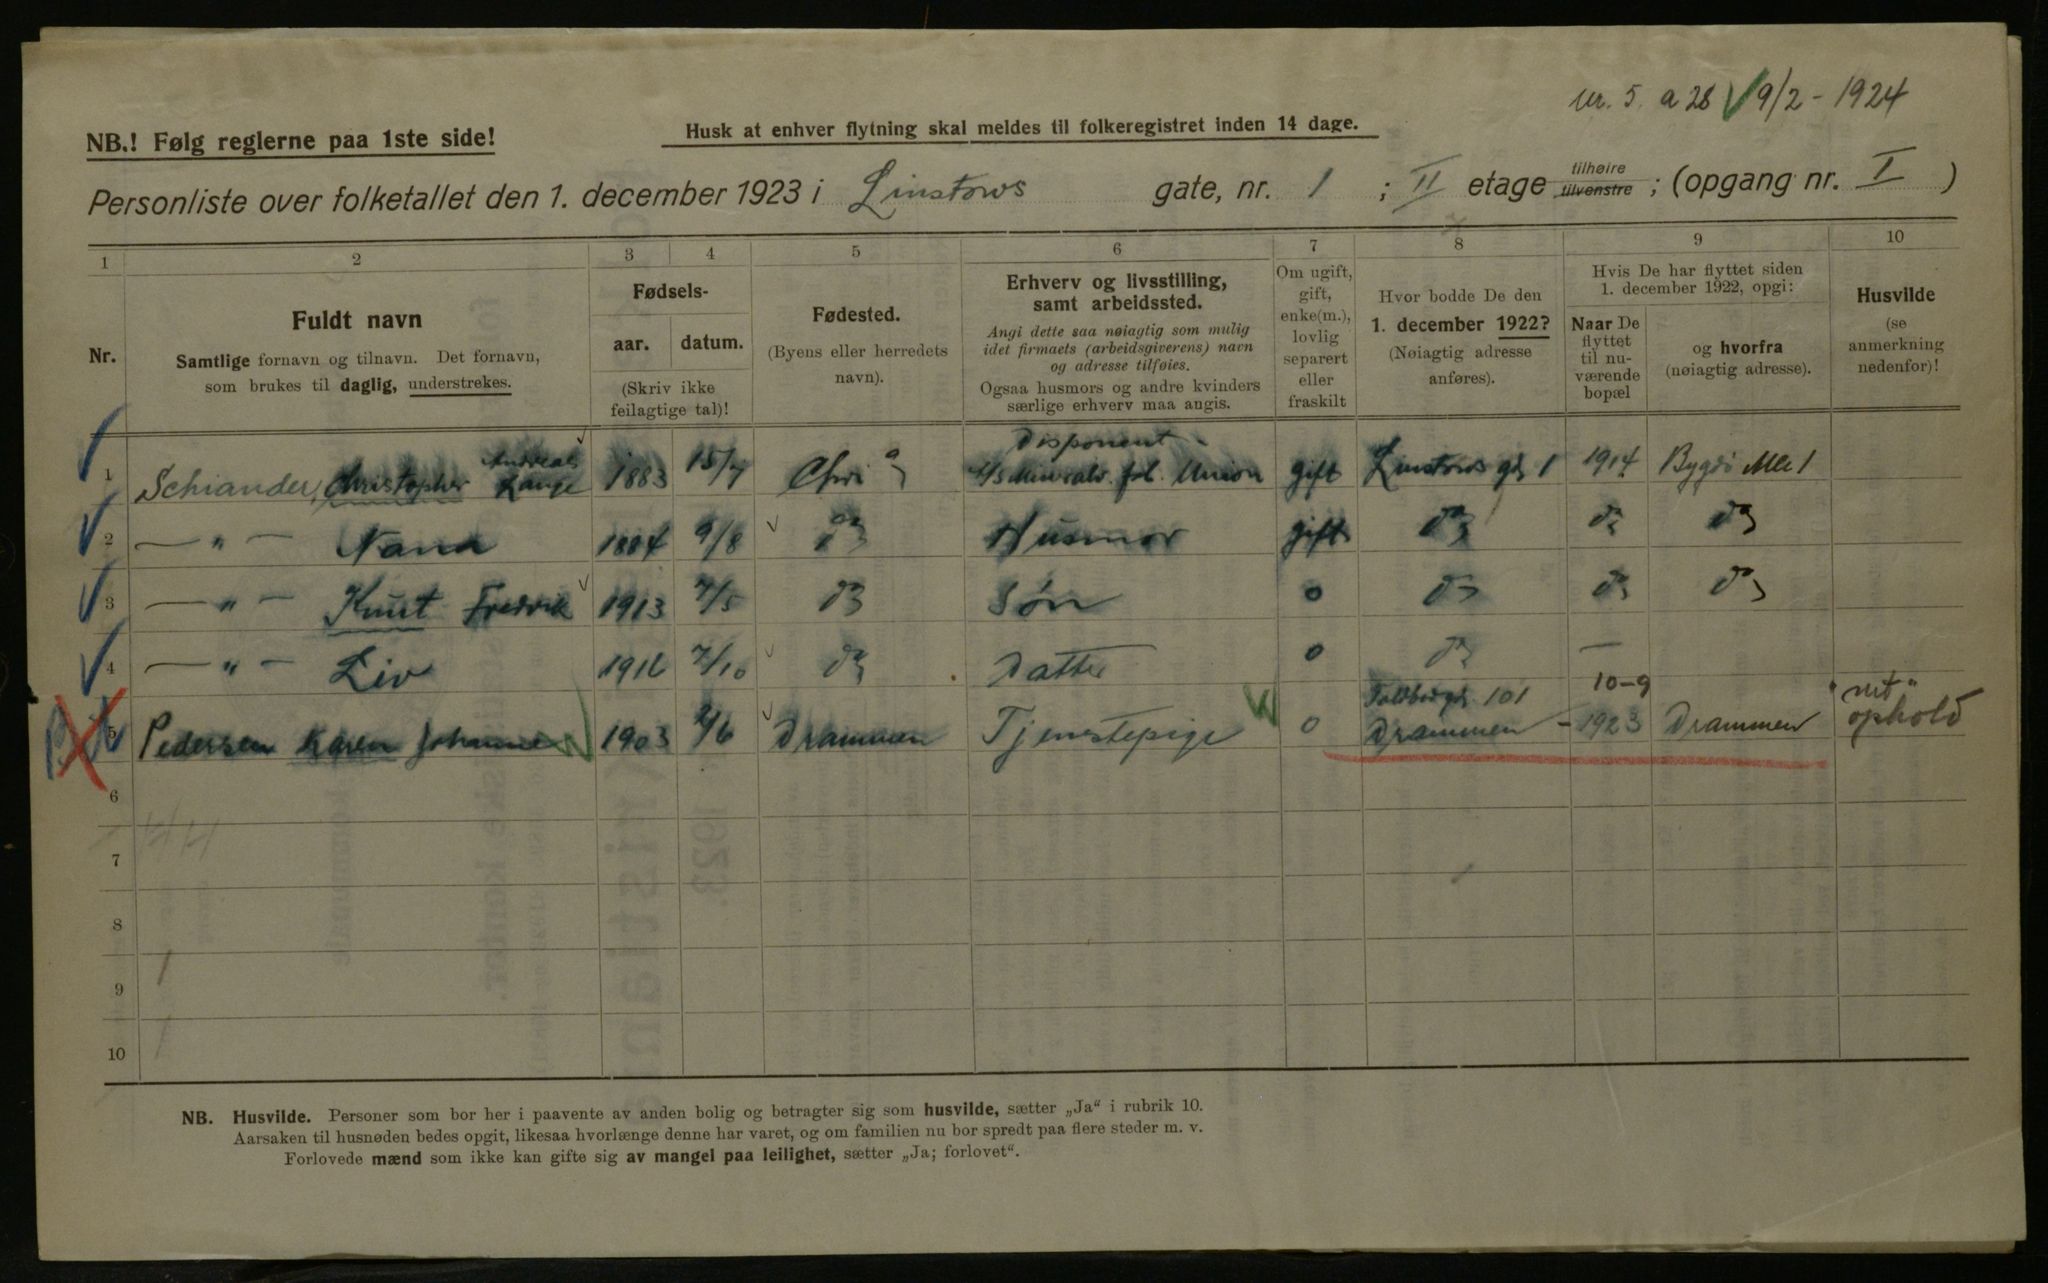 Nr. 5. a 28 √ 9/2 - 1924
NB.! Følg reglerne paa 1ste side!
Husk at enhver flytning skal meldes til folkeregistret inden 14 dage.
Personliste over folketallet den 1. december 1923 i Linstows gate, nr. 1 ; II etage tilhøire tilvenstre ; (opgang nr. I )
1 2 3 4 5 6 7 8 9 10
Nr.
Fuldt navn
Samtlige fornavn og tilnavn. Det fornavn,
som brukes til daglig, understrekes.
Fødsels-
aar. datum.
(Skriv ikke
feilagtige tal)!
Fødested.
(Byens eller herredets
navn).
Erhverv og livsstilling,
samt arbeidssted.
Angi dette saa nøiagtig som mulig
idet firmaets (arbeidsgiverens) navn
og adresse tilføies.
Ogsaa husmors og andre kvinders
særlige erhverv maa angis.
Om ugift,
gift,
enke(m.),
lovlig
separert
eller
fraskilt
Hvor bodde De den
1. december 1922?
(Nøiagtig adresse
anføres).
Hvis De har flyttet siden
1. december 1922, opgi:
Naar De
flyttet
til nu-
værende
bopæl
og hvorfra
(nøiagtig adresse).
Husvilde
(se
anmerkning
nedenfor)!
Andreas Disponent
1 Schiander, Christopher Lange 1883 15/7 Chri a A/S Mineralv. fab. Union gift Linstows gt 1 1914 Bygdø Alle 1
2 — " — Nanna 1884 9/8 do Husmor gift do do do
3 — " — Knut Fredrik 1913 7/5 do Søn o do do do
4 — " — Liv 1916 7/10 do Datter o do —
Tollbugt. 101 10-9 "mt"
5 Pedersen Karen Johanne 1903 2/6 Drammen Tjenstepige o Drammen - 1923 Drammen ophold
6
7
8
9
10
NB. Husvilde. Personer som bor her i paavente av anden bolig og betragter sig som husvilde, sætter „Ja“ i rubrik 10.
Aarsaken til husnøden bedes opgit, likesaa hvorlænge denne har varet, og om familien nu bor spredt paa flere steder m. v.
Forlovede mænd som ikke kan gifte sig av mangel paa leilighet, sætter „Ja; forlovet“.